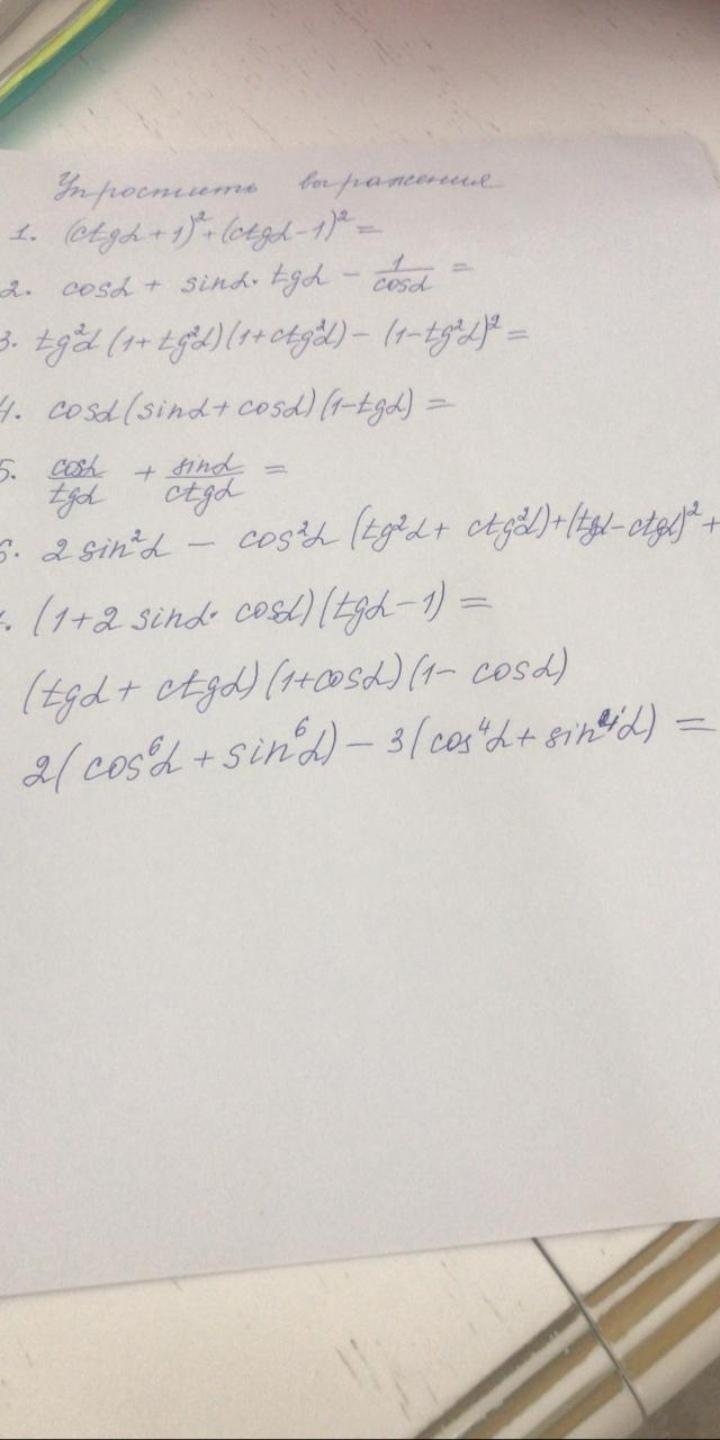 Упростить выражения
1. (ctgα+1)²+(ctgα-1)²=
2. cosα + sinα·tgα - 1/cosα =
3. tg²α(1+tg²α)(1+ctg²α)-(1-tg²α)²=
4. cosα(sinα+cosα)(1-tgα)=
5. cosα/tgα + sinα/ctgα =
6. 2sin²α - cos²α(tg²α+ctg²α)+(tgα-ctgα)²+
(1+2sinα·cosα)(tgα-1)=
(tgα+ctgα)(1+cosα)(1-cosα)
2(cos⁶α+sin⁶α)-3(cos⁴α+sin⁴α)=